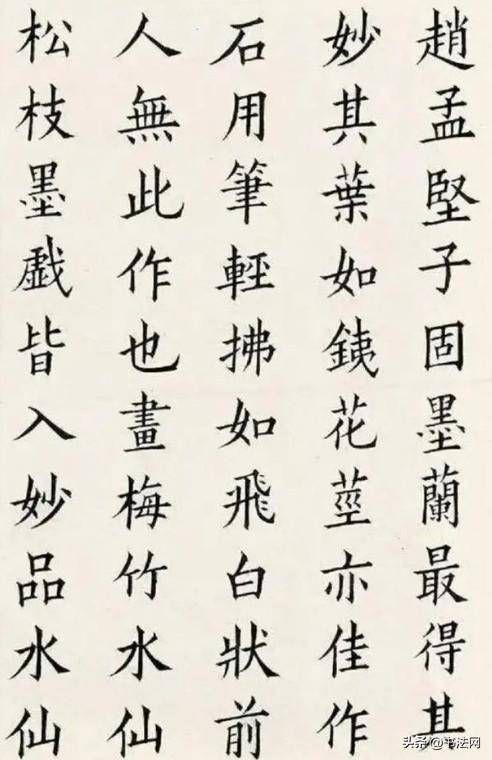 趙孟堅子固墨蘭最得其
妙其葉如銕花莖亦佳作
石用筆輕拂如飛白狀前
人無此作也畫梅竹水仙
松枝墨戯皆入妙品水仙
头条@书法网